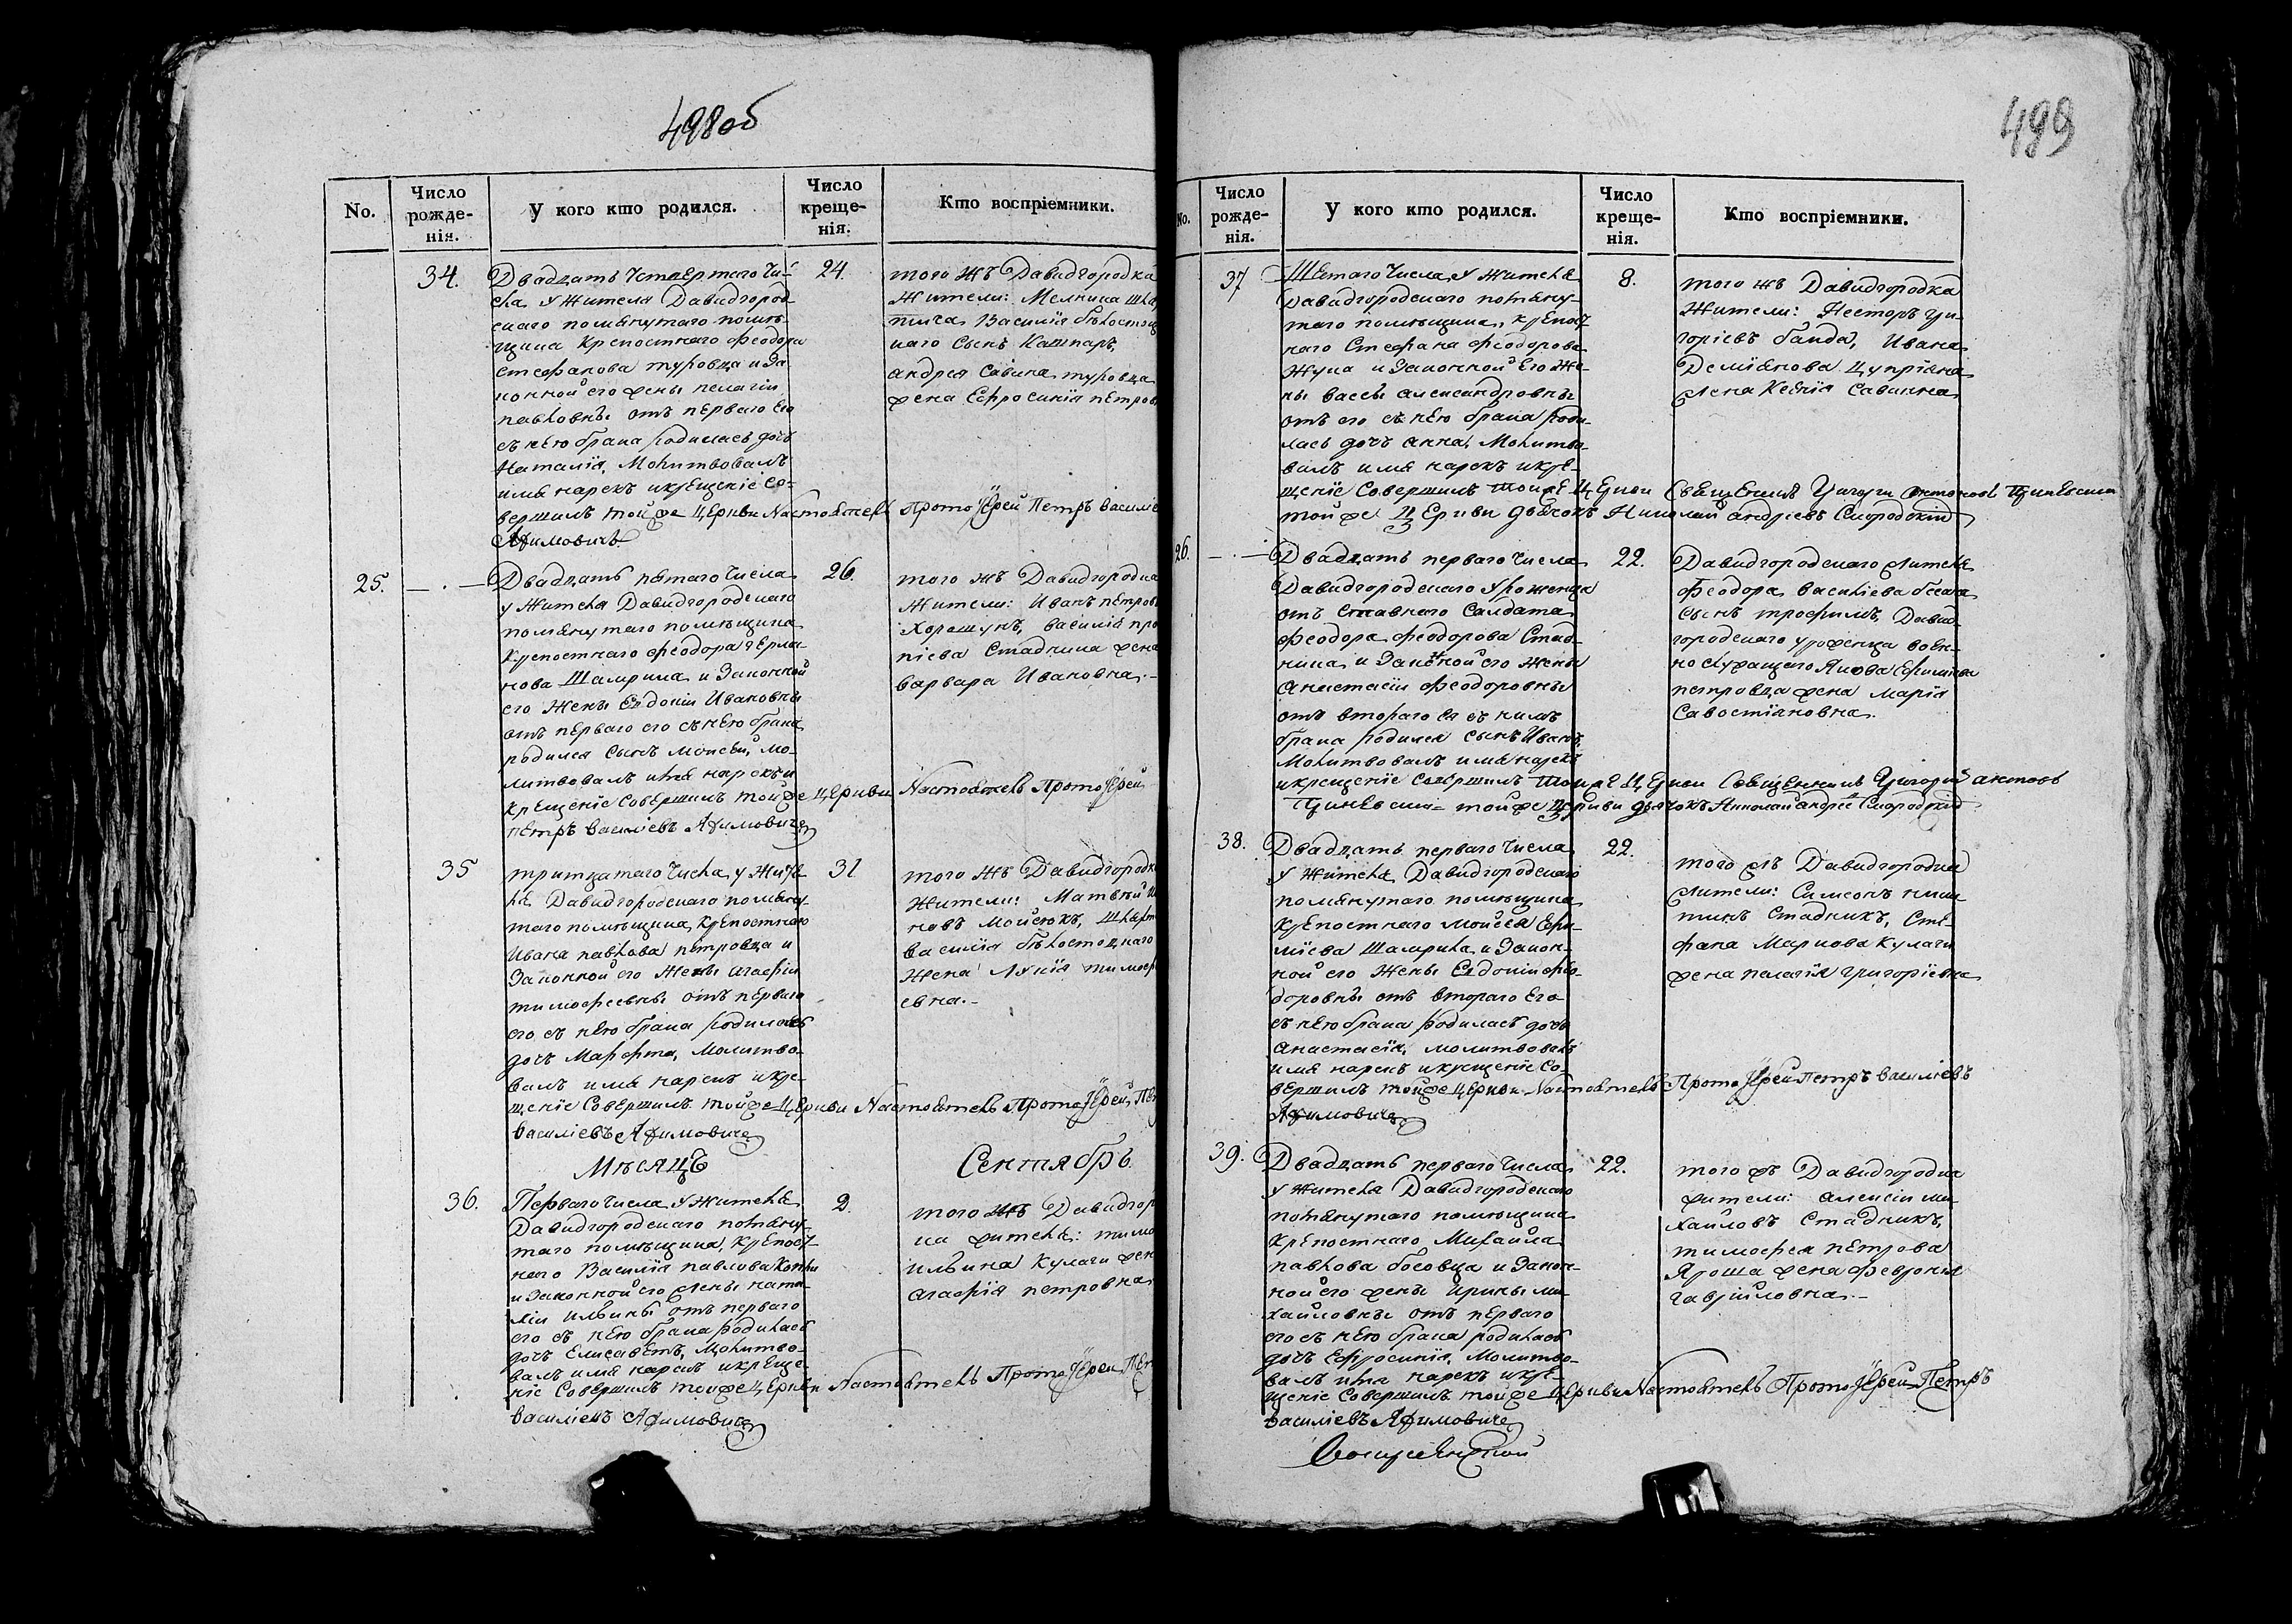 498 об
No.
Число рожде-нія.
У кого кто родился.
Число креще-нія.
Кто воспріемники.
34.
Двадцать четвертаго чи-
сла у жителя Давидгород
скаго помянутаго помѣ-
щика крепостнаго Феодора
Стефанова Туровца и за
конной его жены Пелагіи
Павловны отъ перваго его
съ нею брака родилась дочь
Наталія, молитвовалъ
имя нарекъ и крещеніе со-
вершилъ тойже церкви Настоятель Протоіерей Петръ Василіе
Якимовичъ
24.
того жъ Давидгородка
жители: Мелника
Василія Бѣлостоц
каго сынъ Каспаръ,
Андрея Савина Туровца
жена Ефросинія Петров
25.
Двадцать пятаго числа
у жителя Давидгородскаго
помянутаго помѣщика
крепостнаго Феодора Герма-
нова Шамрила и законной
его жены Евдокіи Ивановны
отъ перваго его съ нею брака
родился сынъ Моисей, мо-
литвовалъ имя нарекъ и
крещеніе совершилъ тойже церкви Настоятель Протоіерей
Петръ Василіевъ Якимовичъ
26.
того жъ Давидгородка
жители: Иванъ Петров
Хорошунъ, Василія Про
піева Стадника жена
Варвара Ивановна.-
35
тритцатаго числа у жите
ля Давидгородскаго помяну
таго помѣщика крепостнаго
Ивана Павлова Петровца и
законной его жены Агафіи
Тимофеевны отъ перваго
его съ нею брака родилась
дочь Марфта, молитво-
валъ имя нарекъ и кре-
щеніе совершилъ тойже церкви Настоятель Протоіерей Пет
Василіевъ Якимовичъ
31
того жъ Давидгородк
жители: Матвѣй И
новъ Мойсюкъ,
Василія Бѣлостоцкаго
жена Лукія Тимоф
евна.-
Мѣсяцъ
Сентябрь
36.
Перваго числа у жителя
Давидгородскаго помяну-
таго помѣщика, крепост-
наго Василія Павлова
и законной его жены Ната
ліи Ильины отъ перваго
его съ нею брака родилась
дочь Елисаветъ, молитво-
валъ имя нарекъ и креще-
ніе совершилъ тойже церкви Настоятель Протоіерей Пет
Василіевъ Якимовичъ
2.
того жъ Давидгор
ка жителя: Тимо
Ильина Кулаги жен
Агафія Петровна
499
No.
Число рожде-нія.
У кого кто родился.
Число креще-нія.
Кто воспріемники.
37
Шестаго числа у жителя
Давидгородскаго помяну-
таго помѣщика, крепост
наго Стефана Феодорова
Жука и законной его же-
ны Вассы Александровны
отъ его съ нею брака роди-
лась дочь Анна, молитво-
валъ имя нарекъ и кре-
щеніе совершилъ тойже церкви Священникъ Григорій Антоновъ
тойже церкви дьячокъ Николай Андреевъ Смородскій
8.
того жъ Давидгородка
жители: Несторъ Гри-
горіевъ Банда, Ивана
Деміянова Цупріяна
жена Ксенія Савинна
26.
Двадцать перваго числа
Давидгородскаго уроженца
отъ ставнаго салдата
Феодора Феодорова Стад-
ника и законной его жены
Анастасіи Феодоровны
отъ втораго ея съ нимъ
брака родился сынъ Иванъ,
молитвовалъ имя нарекъ
и крещеніе совершилъ тойже церкви Священникъ Григорій Антоновъ
тойже церкви дьячокъ Николай Андреевъ Смородскій
22.
Давидгородскаго жителя
Феодора Василіева
сынъ Трофимъ, Давид-
городскаго уроженца воен-
но служащаго Якова Ефимова
Петровца жена Марія
Савостіяновна.
38.
Двадцать перваго числа
у жителя Давидгородскаго
помянутаго помѣщика
крепостнаго Моисея Ери-
міева Шамрила и закон-
ной его жены Евдокіи Фео-
доровны отъ втораго его
съ нею брака родилась дочь
Анастасія, молитвовалъ
имя нарекъ и крещеніе со-
вершилъ тойже церкви Настоятель Протоіерей Петръ Василіевъ
Якимовичъ
22.
того жъ Давидгородка
жители: Симеонъ Ники
тинъ Стадникъ, Сте-
фана Маркова Кулаги
жена Палагія Григоріевна
39.
Двадцать перваго числа
у жителя Давидгородскаго
помянутаго помѣщика
крепостнаго Михаила
Павлова Босовца и закон-
ной его жены Ирины Ми-
хайловны отъ перваго
его съ нею брака родилась
дочь Ефросинія, молитво-
валъ имя нарекъ и кре-
щеніе совершилъ тойже церкви Настоятель Протоіерей Петръ
Василіевъ Якимовичъ
22.
того жъ Давидгородка
жители: Алексіи Ми-
хайловъ Стадникъ,
Тимофея Петрова
Яроша жена Февронія
Гаврииловна.-